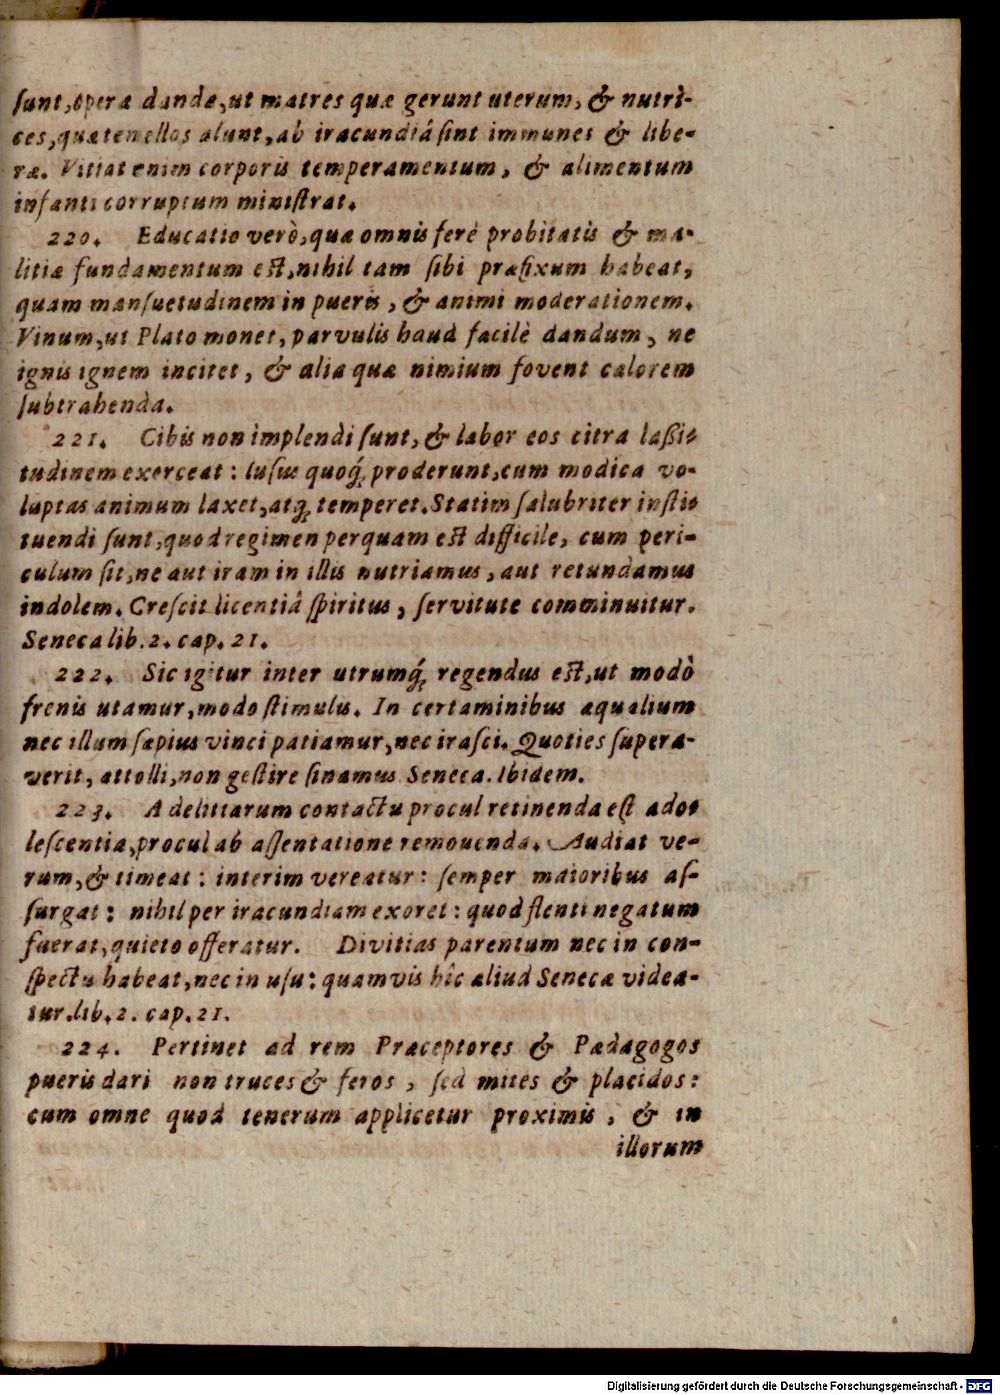 ſunt, opera danda, ut matres quæ gerunt uterum, & nutrì-
ces, quæ tenellos alunt, ab iracundiâ ſint immunes & libe-
ræ. Vitiat enim corporis temperamentum, & alimentum
infanti corruptum miniſtrat.
220. Educatio verò, quæ omnis ferè probitatis & ma-
litiæ fundamentum eſt, nihil tam ſibi præfixum habeat,
quam manſuetudinem in pueris, & animi moderationem.
Vinum, ut Plato monet, parvulis haud facilè dandum, ne
ignis ignem incitet, & alia quæ nimium fovent calorem
ſubtrahenda.
221. Cibis non implendi ſunt, & labor eos citra laßi-
tudinem exerceat: luſus quoq́; proderunt, cum modica vo-
luptas animum laxet, atq; temperet. Statim ſalubriter inſti-
tuendi ſunt, quod regimen perquam eſt difficile, cum peri-
culum ſit, ne aut iram in illis nutriamus, aut retundamus
indolem. Creſcit licentiâ ſpiritus, ſervitute comminuitur.
Seneca lib. 2. cap. 21.
222. Sic igitur inter utrumq́; regendus eſt, ut modò
frenis utamur, modo ſtimulis. In certaminibus æqualium
nec illum ſæpius vinci patiamur, nec iraſci. Quoties ſupera-
verit, attolli, non geſtire ſinamus Seneca. Ibidem.
223. A delittarum contactu procul retinenda eſt ado-
leſcentia, procul ab aſſentatione removenda. Audiat ve-
rum, & timeat: interim vereatur: ſemper maioribus aſ-
ſurgat: nihil per iracundiam exoret: quod flenti negatum
fuerat, quieto offeratur. Divitias parentum nec in con-
ſpectu habeat, nec in uſu: quamvis hîc aliud Senecæ videa-
tur. lib. 2. cap. 21.
224. Pertinet ad rem Præceptores & Pædagogos
pueris dari non truces & feros, ſed mites & placidos:
cum omne quod tenerum applicetur proximis, & in
illorum
Digitalisierung gefördert durch die Deutsche Forschungsgemeinschaft - DFG